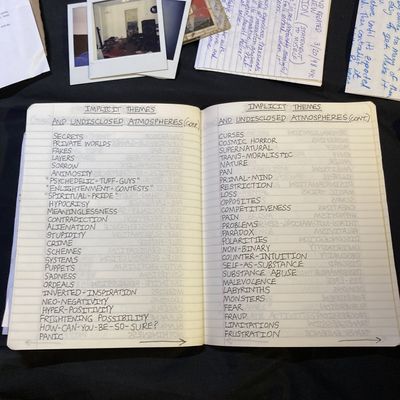 IMPLICIT THEMES
AND UNDISCLOSED ATMOSPHERES (CONT.
SECRETS
PRIVATE WORLDS
FAKES
LAYERS
SORROW
ANIMOSITY
"PSYCHEDELIC-TUFF-GUYS"
"ENLIGHTENMENT-CONTESTS"
"SPIRITUAL-PRIDE"
HYPOCRISY
MEANINGLESSNESS
CONTRADICTION
ALIENATION
STUPIDITY
CRIME
SCHEMES
SYSTEMS
PUPPETS
SADNESS
ORDEALS
INVERTED-INSPIRATION
NEO-NEGATIVITY
HYPER-POSITIVITY
FRIGHTENING POSSIBILITY
HOW-CAN-YOU-BE-SO-SURE?
PANIC
IMPLICIT THEMES
AND UNDISCLOSED ATMOSPHERES (CONT.)
CURSES
COSMIC HORROR
SUPERNATURAL
TRANS-MORALISTIC
NATURE
PAN
PRIMAL-MIND
RESTRICTION
LOSS
OPPOSITES
COMPETITIVENESS
PAIN
PROBLEMS
PARADOX
POLARITIES
NON-BINARY
COUNTER-INTUITION
SELF-AS-SUBSTANCE
SUBSTANCE ABUSE
MALEVOLENCE
LABYRINTHS
MONSTERS
FEAR
FRAUD
LIMITATIONS
FRUSTRATION